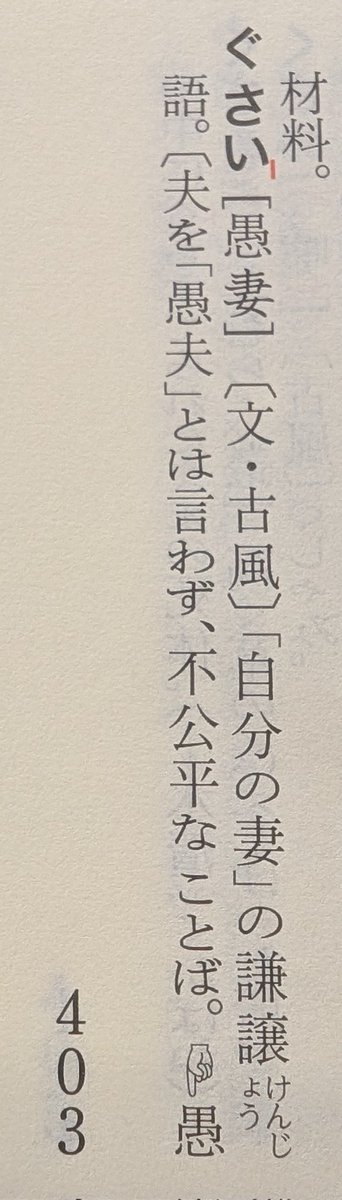 材料。
ぐさい[愚妻]〔文・古風〕「自分の妻」の謙譲けんじょう
語。〔夫を「愚夫」とは言わず、不公平なことば。☟愚
403